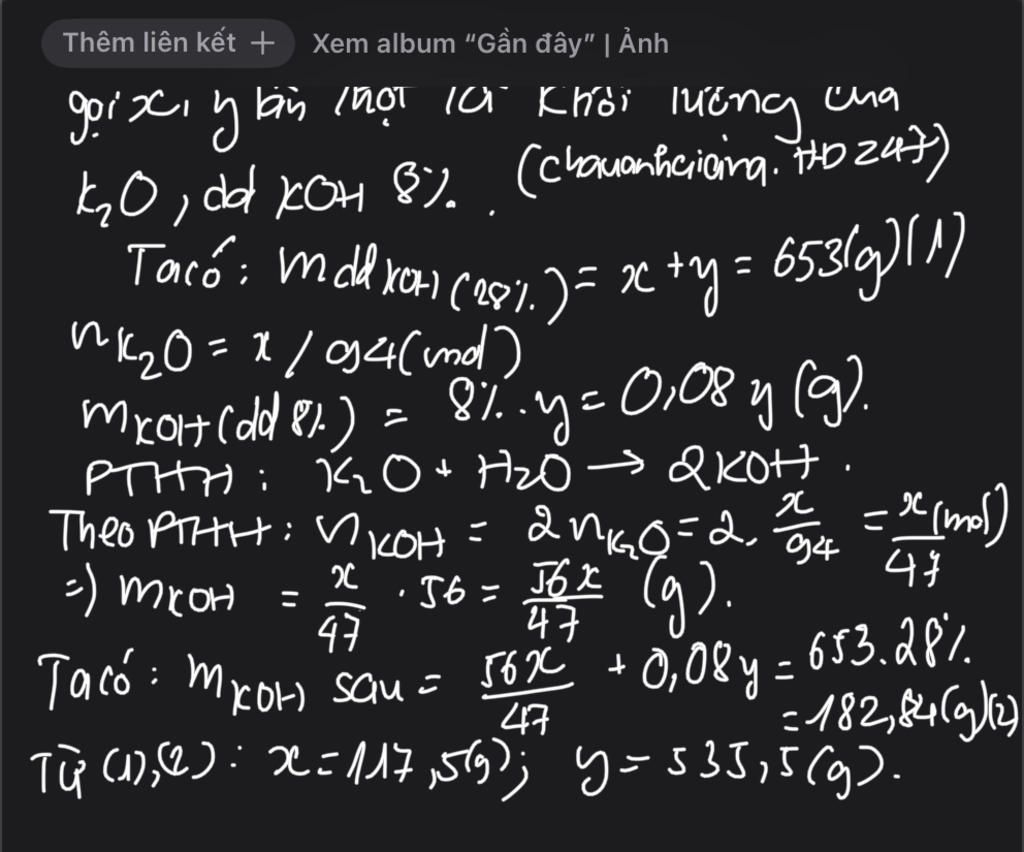 Thêm liên kết + Xem album “Gần đây” | Ảnh
gọi x, y lần lượt là khối lượng của
K₂O, dd KOH 8%. (chauanhgiang.HDZ47)
Ta có: mdd KOH (28%) = x + y = 653(g) (1)
nK₂O = x / 94 (mol)
mKOH (dd 8%) = 8%.y = 0,08 y (g).
PTHH: K₂O + H₂O → 2KOH.
Theo PTHH: nKOH = 2nK₂O = 2. x/94 = x/47 (mol)
=> mKOH = x/47 . 56 = 56x/47 (g).
Ta có: mKOH sau = 56x/47 + 0,08y = 653.28%
= 182,84(g)(2)
Từ (1),(2): x = 117,5(g); y = 535,5(g).